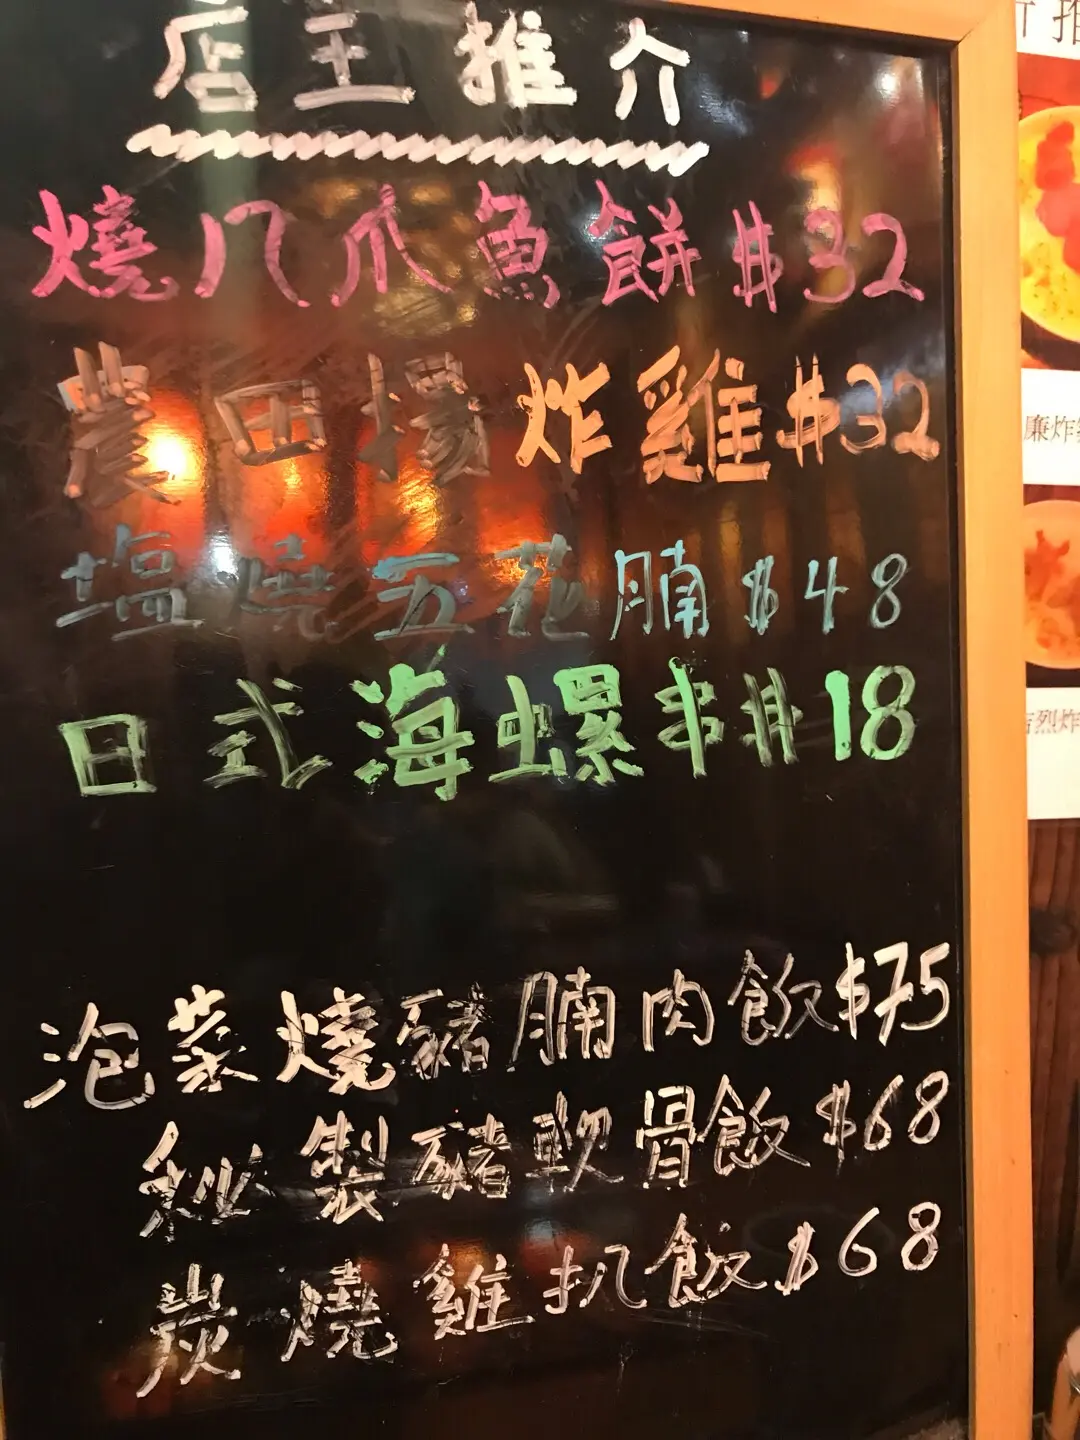 店主推介
燒八爪魚餅$32
農田場炸雞$32
塩燒五花腩$48
日式海螺串$18
泡菜燒豬腩肉飯$75
秘製豬軟骨飯$68
炭燒雞扒飯$68
推
廉炸
烈炸